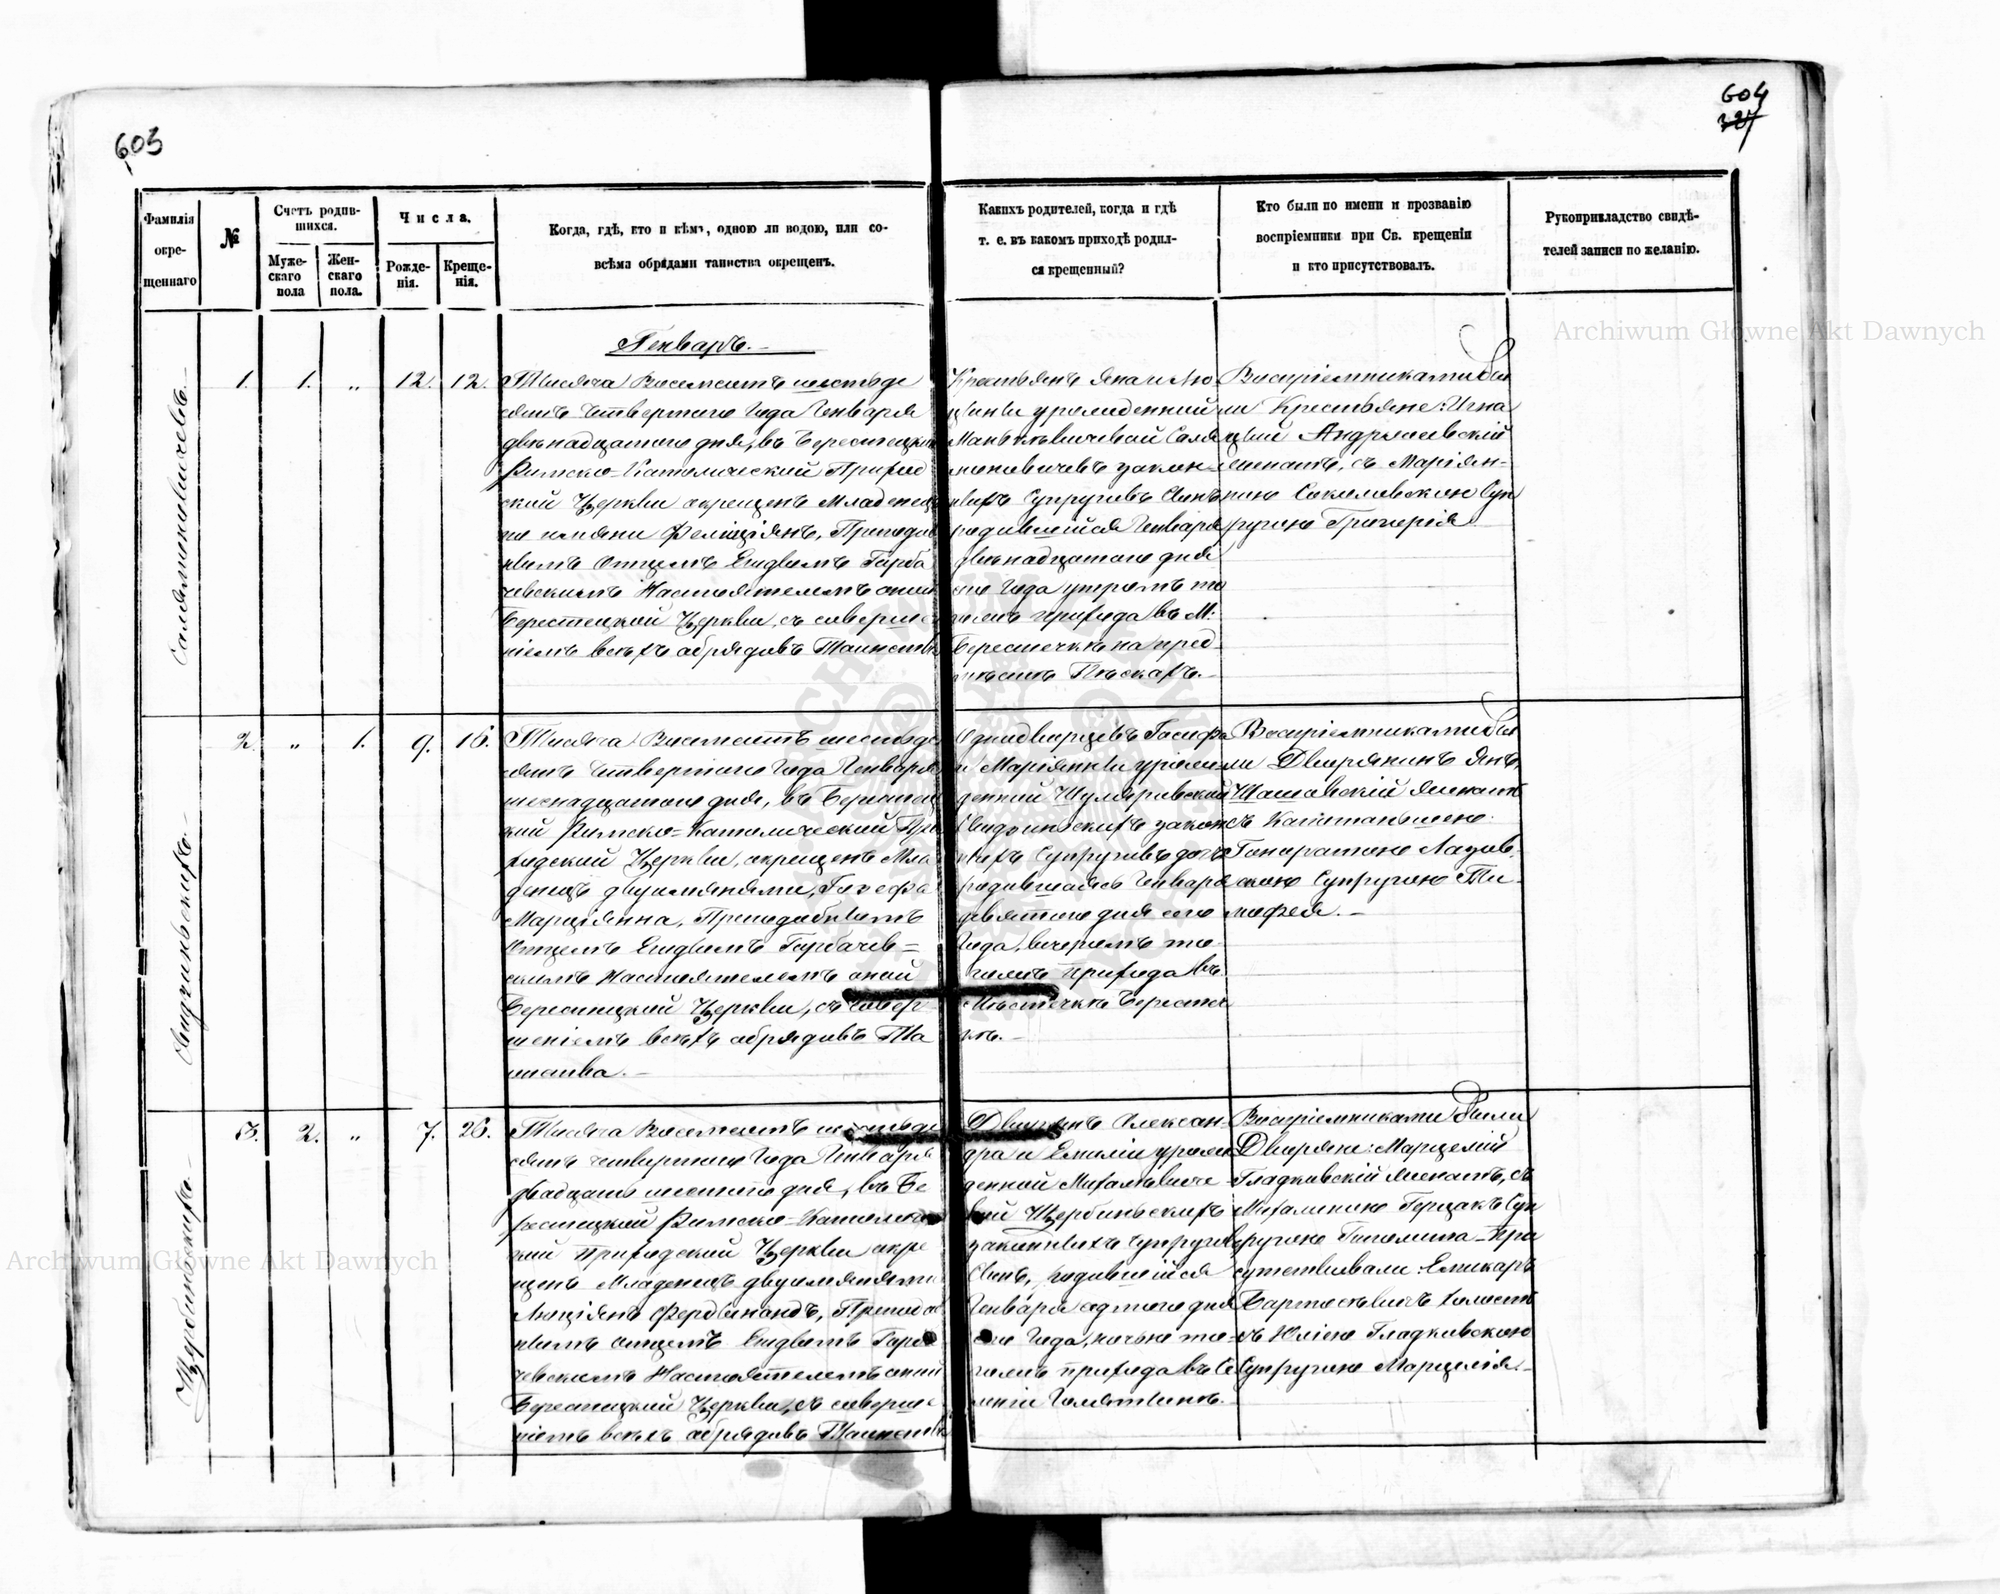 603
604
Archiwum Główne Akt Dawnych
Фамилія окрещеннаго
№
Счетъ родившихся.
Мужескаго пола
Женскаго пола.
Числа.
Рожденія.
Крещенія.
Когда, гдѣ, кто и кѣмъ, одною ли водою, или со-
всѣми обрядами таинства окрещенъ.
Какихъ родителей, когда и гдѣ
т. е. въ какомъ приходѣ родил-
ся крещенный?
Кто были по имени и прозванію
воспріемники при Св. крещеніи
и кто присутствовалъ.
Рукоприкладство свидѣ-
телей записи по желанію.
Генварь.
1. 1. „ 12. 12.
Тысяча Восемсотъ шестьде
сятъ Четвертого Года Генваря
двѣнадцатого дня, въ Берестецкой
Римско-Католической Приход
ской Церкви окрещенъ Младенецъ
по имяни Фелиціянъ, Преподоб
нымъ Отцемъ Гарба
чевскимъ Настоятелемъ оной
Берестецкой Церкви, съ соверше
ніемъ всѣхъ обрядовъ Таинства
Крестьянъ Яна и Лю
цыны урожденной
мановичевъ закон-
ныхъ Супруговъ Сынъ
родившійся Генваря
двѣнадцатого дня
сего Года утромъ то
гожъ прихода въ М.
Берестечкѣ на пред
мѣстѣ Пѣскахъ.
Воспріемниками бы
ли Крестьяне: Игна
цый Андржеевскій
женатъ, съ Маріян-
ною Соколовскою Суп
ругою Григорія
2. „ 1. 9. 16.
Тысяча Восемсотъ шестьде
сятъ Четвертого Года Генваря
шеснадцатого дня, въ Берестец
кой Римско=Католической При
ходской Церкви, окрещенъ Мла
денецъ двуимянями, Іозефа
Марціянна, Преподобнымъ
Отцемъ Гарбачев=
скимъ Настоятелемъ оной
Берестецкой Церкви, съ совер-
шеніемъ всѣхъ обрядовъ Та
инства.
Однодворцевъ Іосифа
и Маріянны урож
денной Шуляровской
закон
ныхъ Супруговъ дочь
родившаясь Генваря
девятого дня сего
Года, вечеромъ то
гожъ прихода въ
Мѣстечкѣ Берестеч
кѣ.
Воспріемниками бы
ли Дворянинъ Янъ
женатъ
съ Капитаньшею
Гоноратою Лазов-
скою Супругою Ти-
мофея.
3. 2. „ 7. 26.
Тысяча Восемсотъ шестьде
сятъ четвертого Года Генваря
двадцать шестого дня, въ Бе
рестецкой Римско-Католичес
кой Приходской Церкви окре
щенъ Младенецъ двуимянями
Люціянъ Фердинандъ, Преподоб
нымъ отцемъ Гарба
чевскимъ Настоятелемъ оной
Берестецкой Церкви, съ соверше
ніемъ всѣхъ обрядовъ Таинства
Дворянъ Алексан-
дра и Емиліи урож
денной Михалѣвиче
вой Щербинскихъ
законныхъ Супруговъ
Сынъ, родившійся
Генваря седмого дня
сего Года, ночью то-
гожъ прихода въ Се
леніи
Воспріемниками были
Дворяне: Марцелій
Гладковскій женатъ, съ
Михалиною Герцакъ Суп
ругою При
сутствовали:
холостъ
съ Юліею Гладковскою
Супругою Марцелія.
Щербинскихъ
Archiwum Główne Akt Dawnych